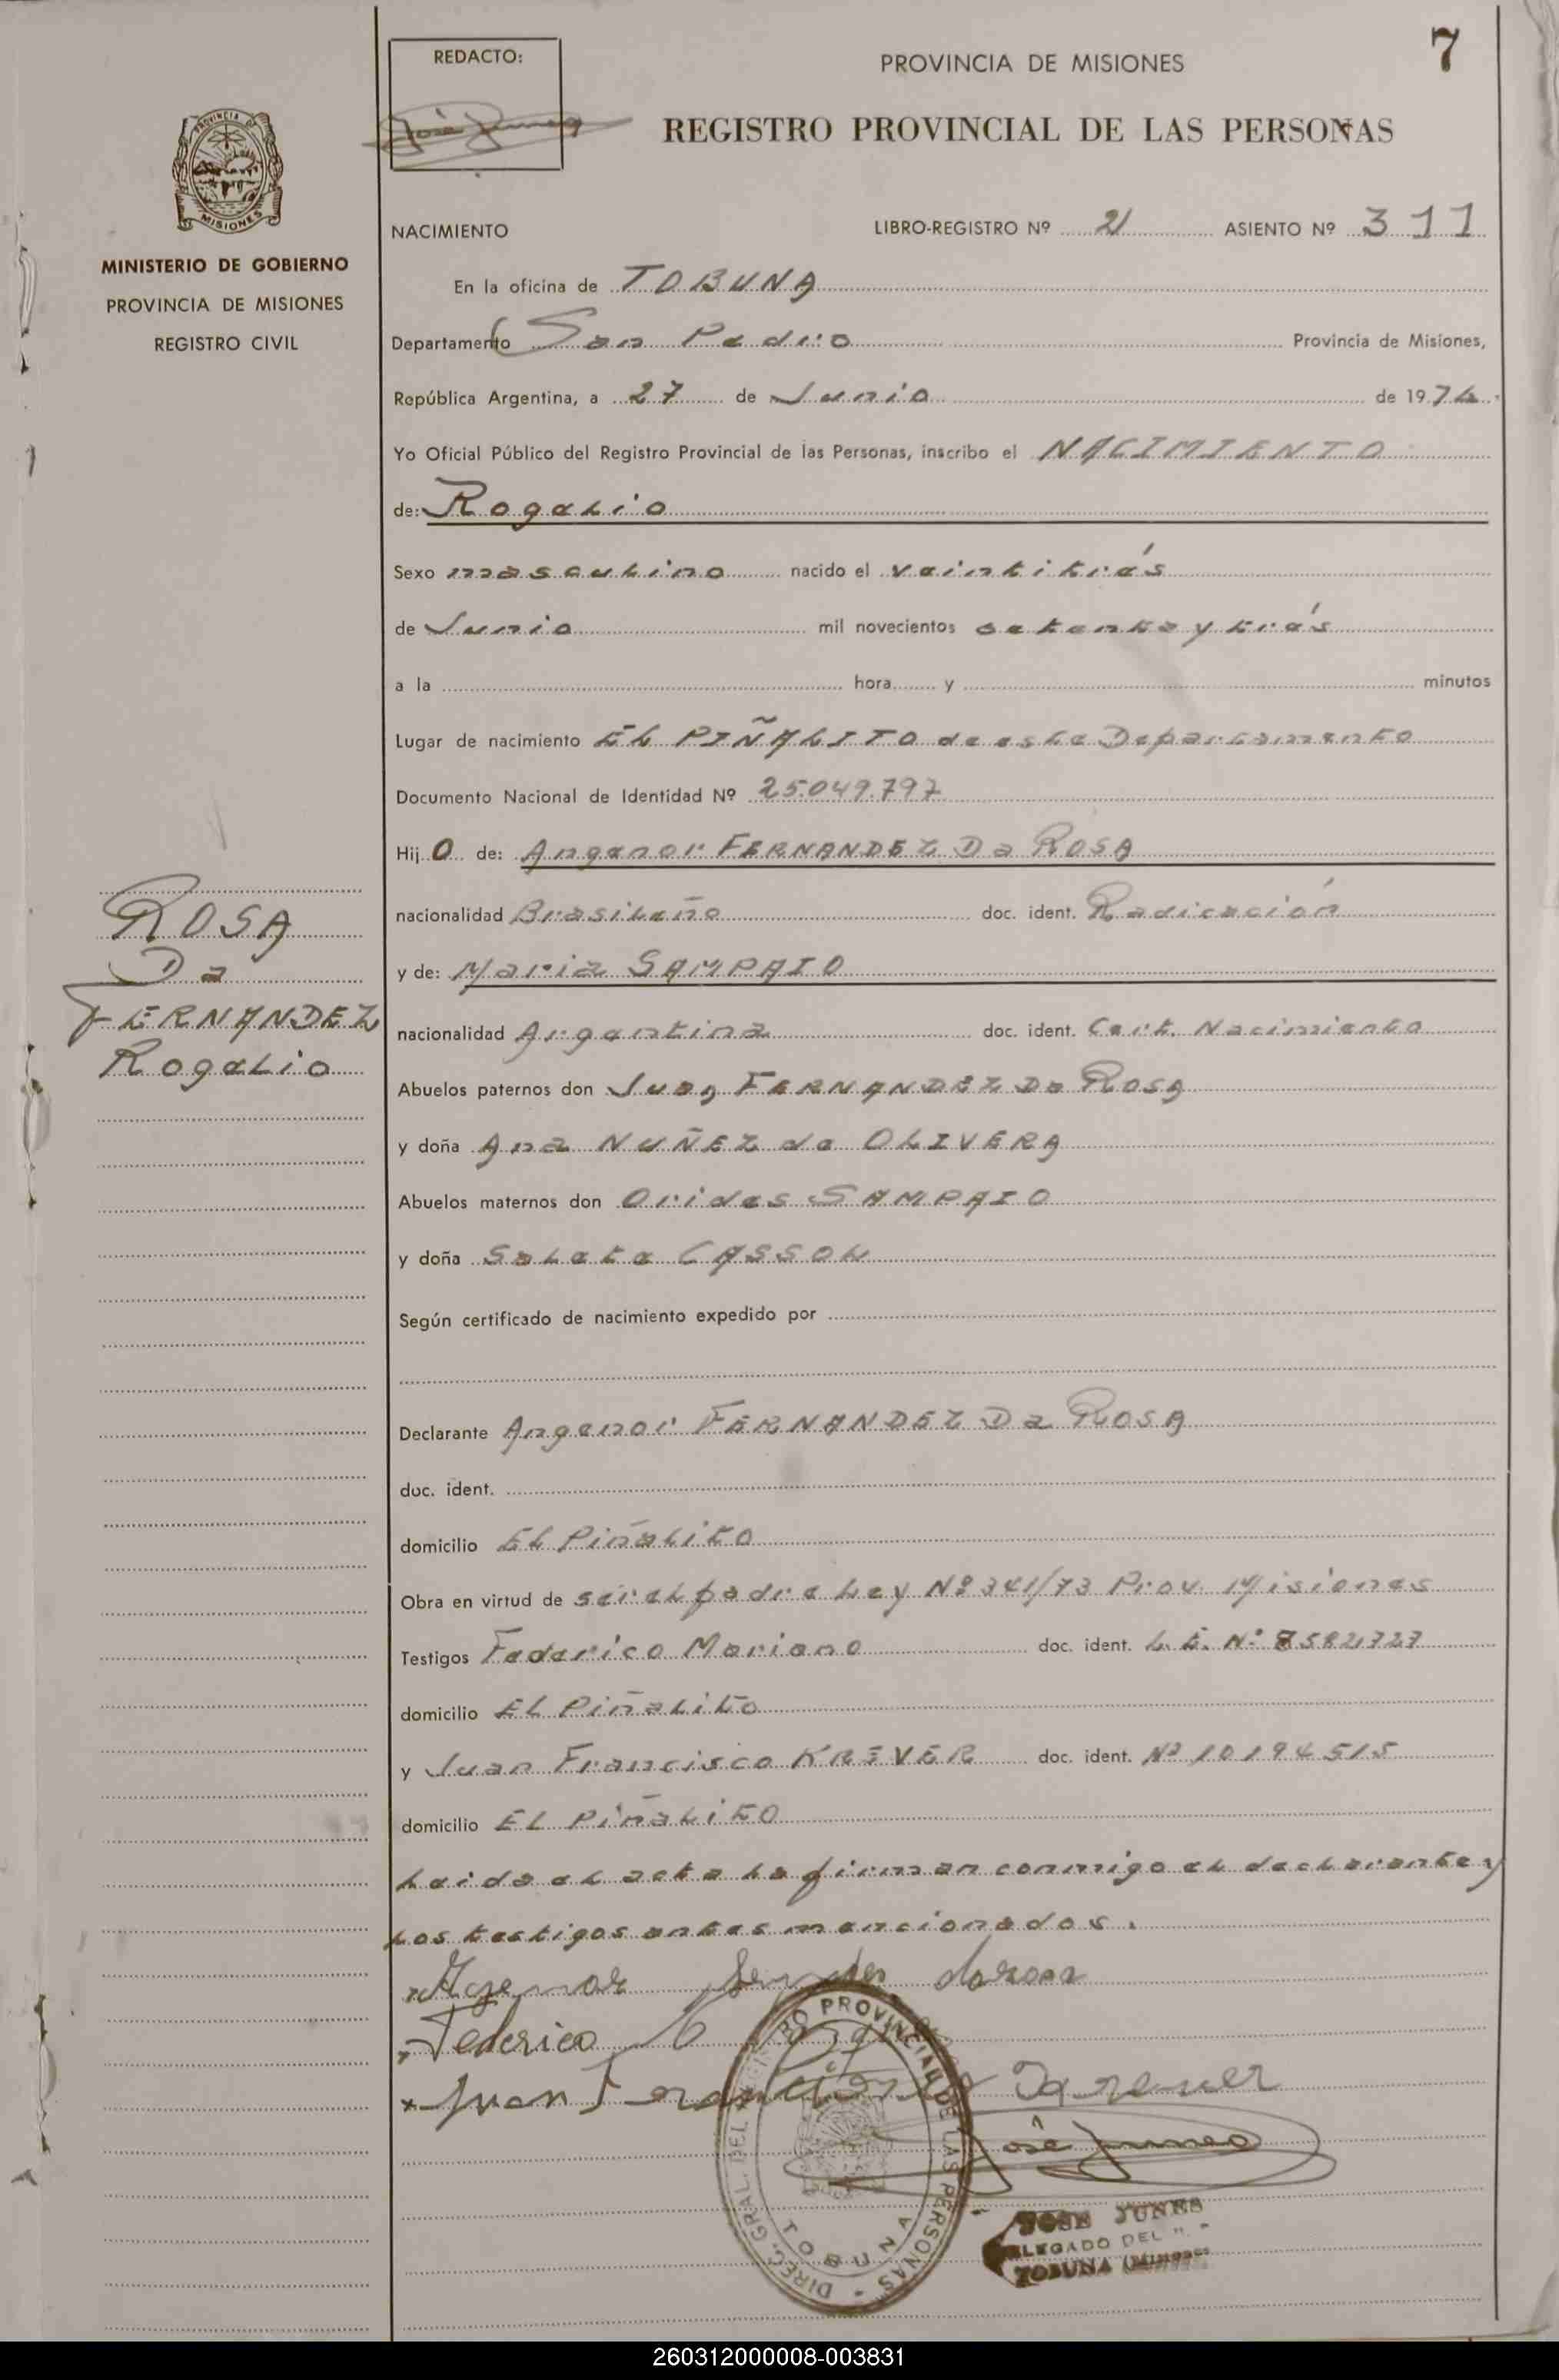 7
REDACTO:
PROVINCIA DE MISIONES
REGISTRO PROVINCIAL DE LAS PERSONAS
PROVINCIA DE
MISIONES
MINISTERIO DE GOBIERNO
PROVINCIA DE MISIONES
REGISTRO CIVIL
NACIMIENTO LIBRO-REGISTRO Nº 21 ASIENTO Nº 311
En la oficina de TOBUNA
Departamento San Pedro Provincia de Misiones,
República Argentina, a 27 de Junio de 1974
Yo Oficial Público del Registro Provincial de las Personas, inscribo el NACIMIENTO
de: Rogelio
Sexo masculino nacido el veintitrés
de Junio mil novecientos setenta y trés
a la hora y minutos
Lugar de nacimiento EL PIÑALITO de este Departamento
Documento Nacional de Identidad Nº 25.049.797
Hijo de: Angenor FERNANDEZ Da ROSA
nacionalidad Brasileño doc. ident. Radicación
y de: Maria SAMPAIO
nacionalidad Argentina doc. ident. Cert. Nacimiento
Abuelos paternos don Juan FERNANDEZ Da ROSA
y doña Ana NUÑEZ de OLIVERA
Abuelos maternos don Orides SAMPAIO
y doña Salete CASSOL
Según certificado de nacimiento expedido por
Declarante Angenor FERNANDEZ Da ROSA
doc. ident.
domicilio EL Piñalito
Obra en virtud de ser el padre Ley Nº 341/73 Prov. Misiones
Testigos Federico Mariano doc. ident. L.E. Nº 7582727
domicilio EL Piñalito
y Juan Francisco KREVER doc. ident. Nº 10194515
domicilio EL Piñalito
Leida el acta la firman conmigo el declarante y
los testigos antes mencionados.
ROSA
Da
FERNANDEZ
Rogelio
Federico
Juan Francisco
DIREC. GRAL. DEL REGISTRO PROVINCIAL DE LAS PERSONAS
TOBUNA
JOSE JUNES
DELEGADO DEL
TOBUNA (Misiones)
260312000008-003831